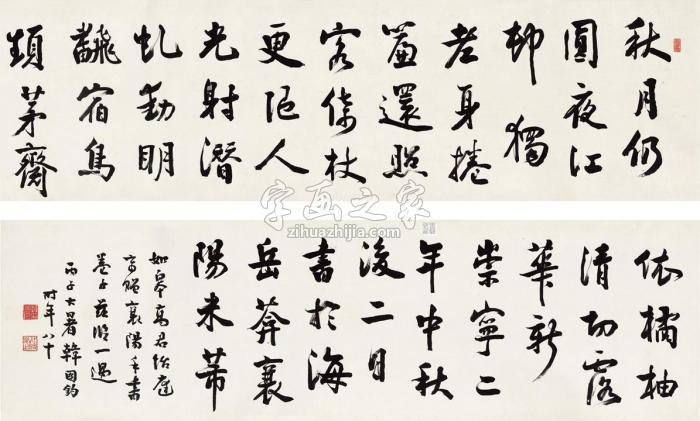 秋月仍
圓夜江
邨獨
老身捲
簾還照
客倚杖
更隨人
光射潛
虬動明
飜宿鳥
頻茅齋
依橘柚
清切露
華新
崇寧二
年中秋
後二日
書於海
岳菴襄
陽米芾
如皋高君怡庭
寄贈襄陽手書
卷子茲臨一過
丙子大暑韓國鈞
時年八十
字画之家
zihuazhijia.com